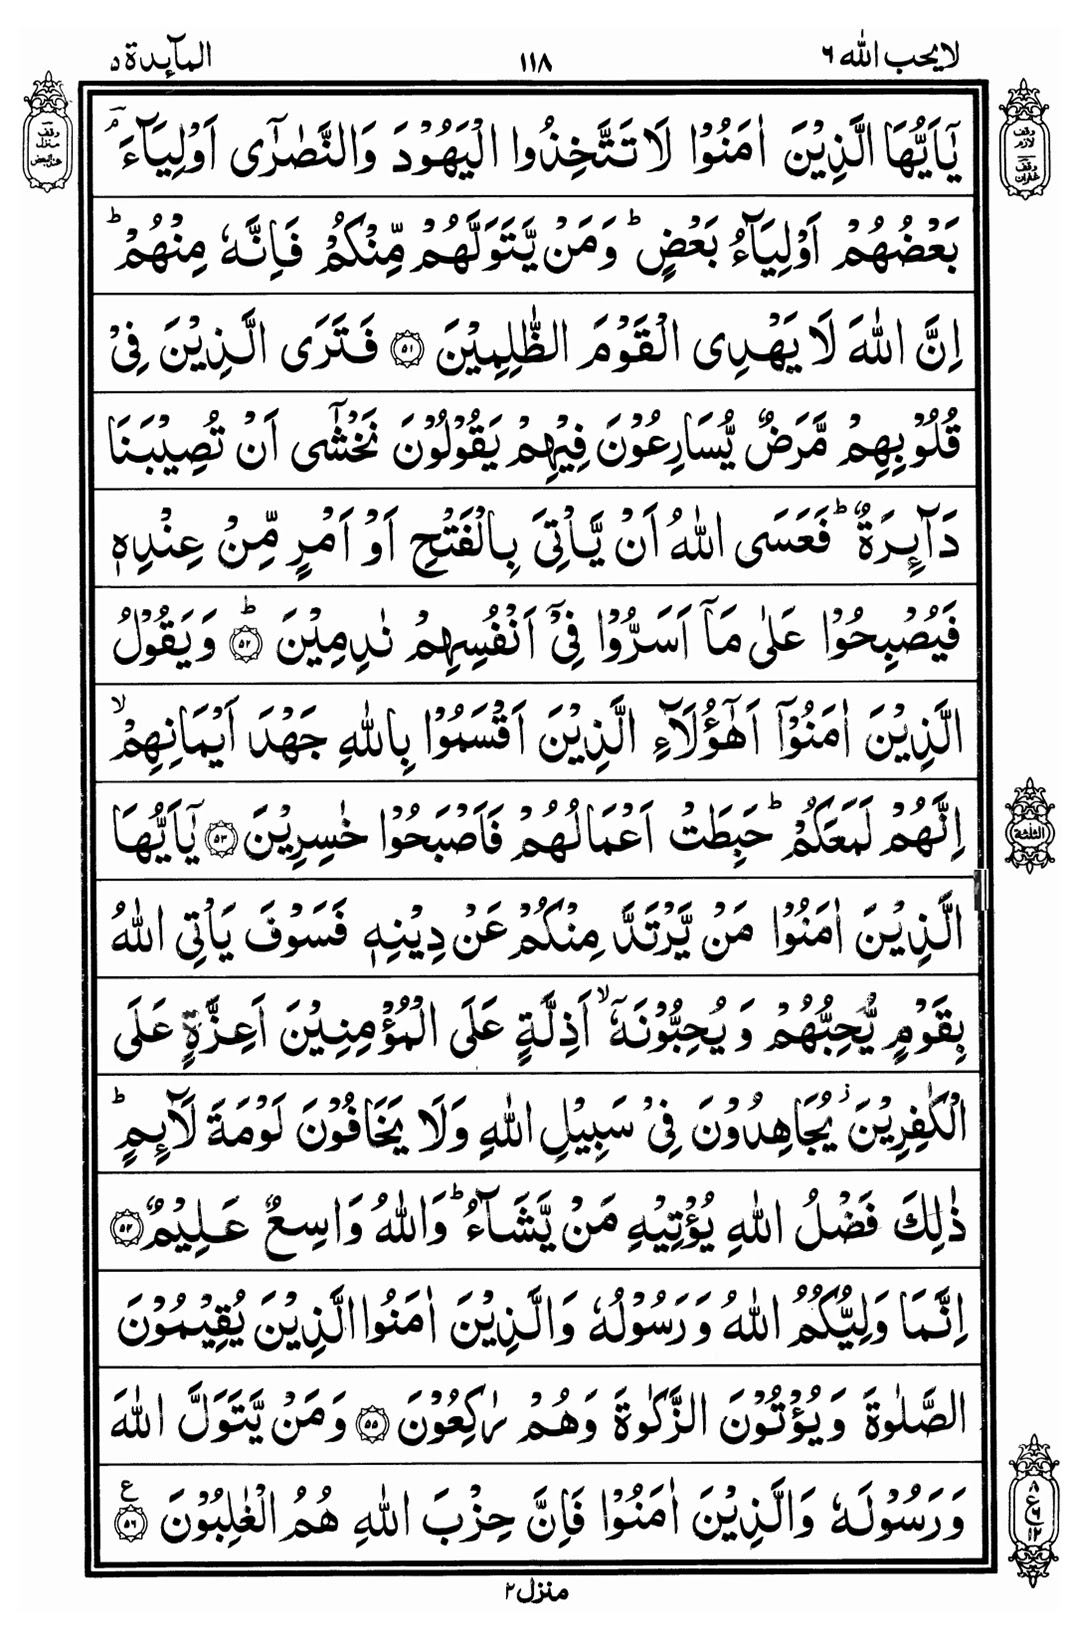 لايحب الله ٦
١١٨
المآئدة ٥
يٰۤاَيُّهَا الَّذِيْنَ اٰمَنُوْا لَا تَتَّخِذُوا الْيَهُوْدَ وَالنَّصٰرٰۤى اَوْلِيَآءَ ۘؔ
بَعْضُهُمْ اَوْلِيَآءُ بَعْضٍ ؕ وَمَنْ يَّتَوَلَّهُمْ مِّنْكُمْ فَاِنَّهٗ مِنْهُمْ ؕ
اِنَّ اللّٰهَ لَا يَهْدِى الْقَوْمَ الظّٰلِمِيْنَ ﴿٥١﴾ فَتَرَى الَّذِيْنَ فِىْ
قُلُوْبِهِمْ مَّرَضٌ يُّسَارِعُوْنَ فِيْهِمْ يَقُوْلُوْنَ نَخْشٰٓى اَنْ تُصِيْبَنَا
دَآئِرَةٌ ؕ فَعَسَى اللّٰهُ اَنْ يَّاْتِىَ بِالْفَتْحِ اَوْ اَمْرٍ مِّنْ عِنْدِهٖ
فَيُصْبِحُوْا عَلٰى مَاۤ اَسَرُّوْا فِىْۤ اَنْفُسِهِمْ نٰدِمِيْنَ ؕ ﴿٥٢﴾ وَيَقُوْلُ
الَّذِيْنَ اٰمَنُوْۤا اَهٰٓؤُلَآءِ الَّذِيْنَ اَقْسَمُوْا بِاللّٰهِ جَهْدَ اَيْمَانِهِمْ ۙ
اِنَّهُمْ لَمَعَكُمْ ؕ حَبِطَتْ اَعْمَالُهُمْ فَاَصْبَحُوْا خٰسِرِيْنَ ﴿٥٣﴾ يٰۤاَيُّهَا
الَّذِيْنَ اٰمَنُوْا مَنْ يَّرْتَدَّ مِنْكُمْ عَنْ دِيْنِهٖ فَسَوْفَ يَاْتِى اللّٰهُ
بِقَوْمٍ يُّحِبُّهُمْ وَيُحِبُّوْنَهٗۤ ۙ اَذِلَّةٍ عَلَى الْمُؤْمِنِيْنَ اَعِزَّةٍ عَلَى
الْكٰفِرِيْنَ ز يُجَاهِدُوْنَ فِىْ سَبِيْلِ اللّٰهِ وَلَا يَخَافُوْنَ لَوْمَةَ لَآئِمٍ ؕ
ذٰلِكَ فَضْلُ اللّٰهِ يُؤْتِيْهِ مَنْ يَّشَآءُ ؕ وَاللّٰهُ وَاسِعٌ عَلِيْمٌ ﴿٥٤﴾
اِنَّمَا وَلِيُّكُمُ اللّٰهُ وَرَسُوْلُهٗ وَالَّذِيْنَ اٰمَنُوا الَّذِيْنَ يُقِيْمُوْنَ
الصَّلٰوةَ وَيُؤْتُوْنَ الزَّكٰوةَ وَهُمْ رٰكِعُوْنَ ﴿٥٥﴾ وَمَنْ يَّتَوَلَّ اللّٰهَ
وَرَسُوْلَهٗ وَالَّذِيْنَ اٰمَنُوْا فَاِنَّ حِزْبَ اللّٰهِ هُمُ الْغٰلِبُوْنَ ع ﴿٥٦﴾
منزل ٢
وقف
لازم
وقف
غفران
وقف
منزل
الثلثة
٨
ع ٦
١٢